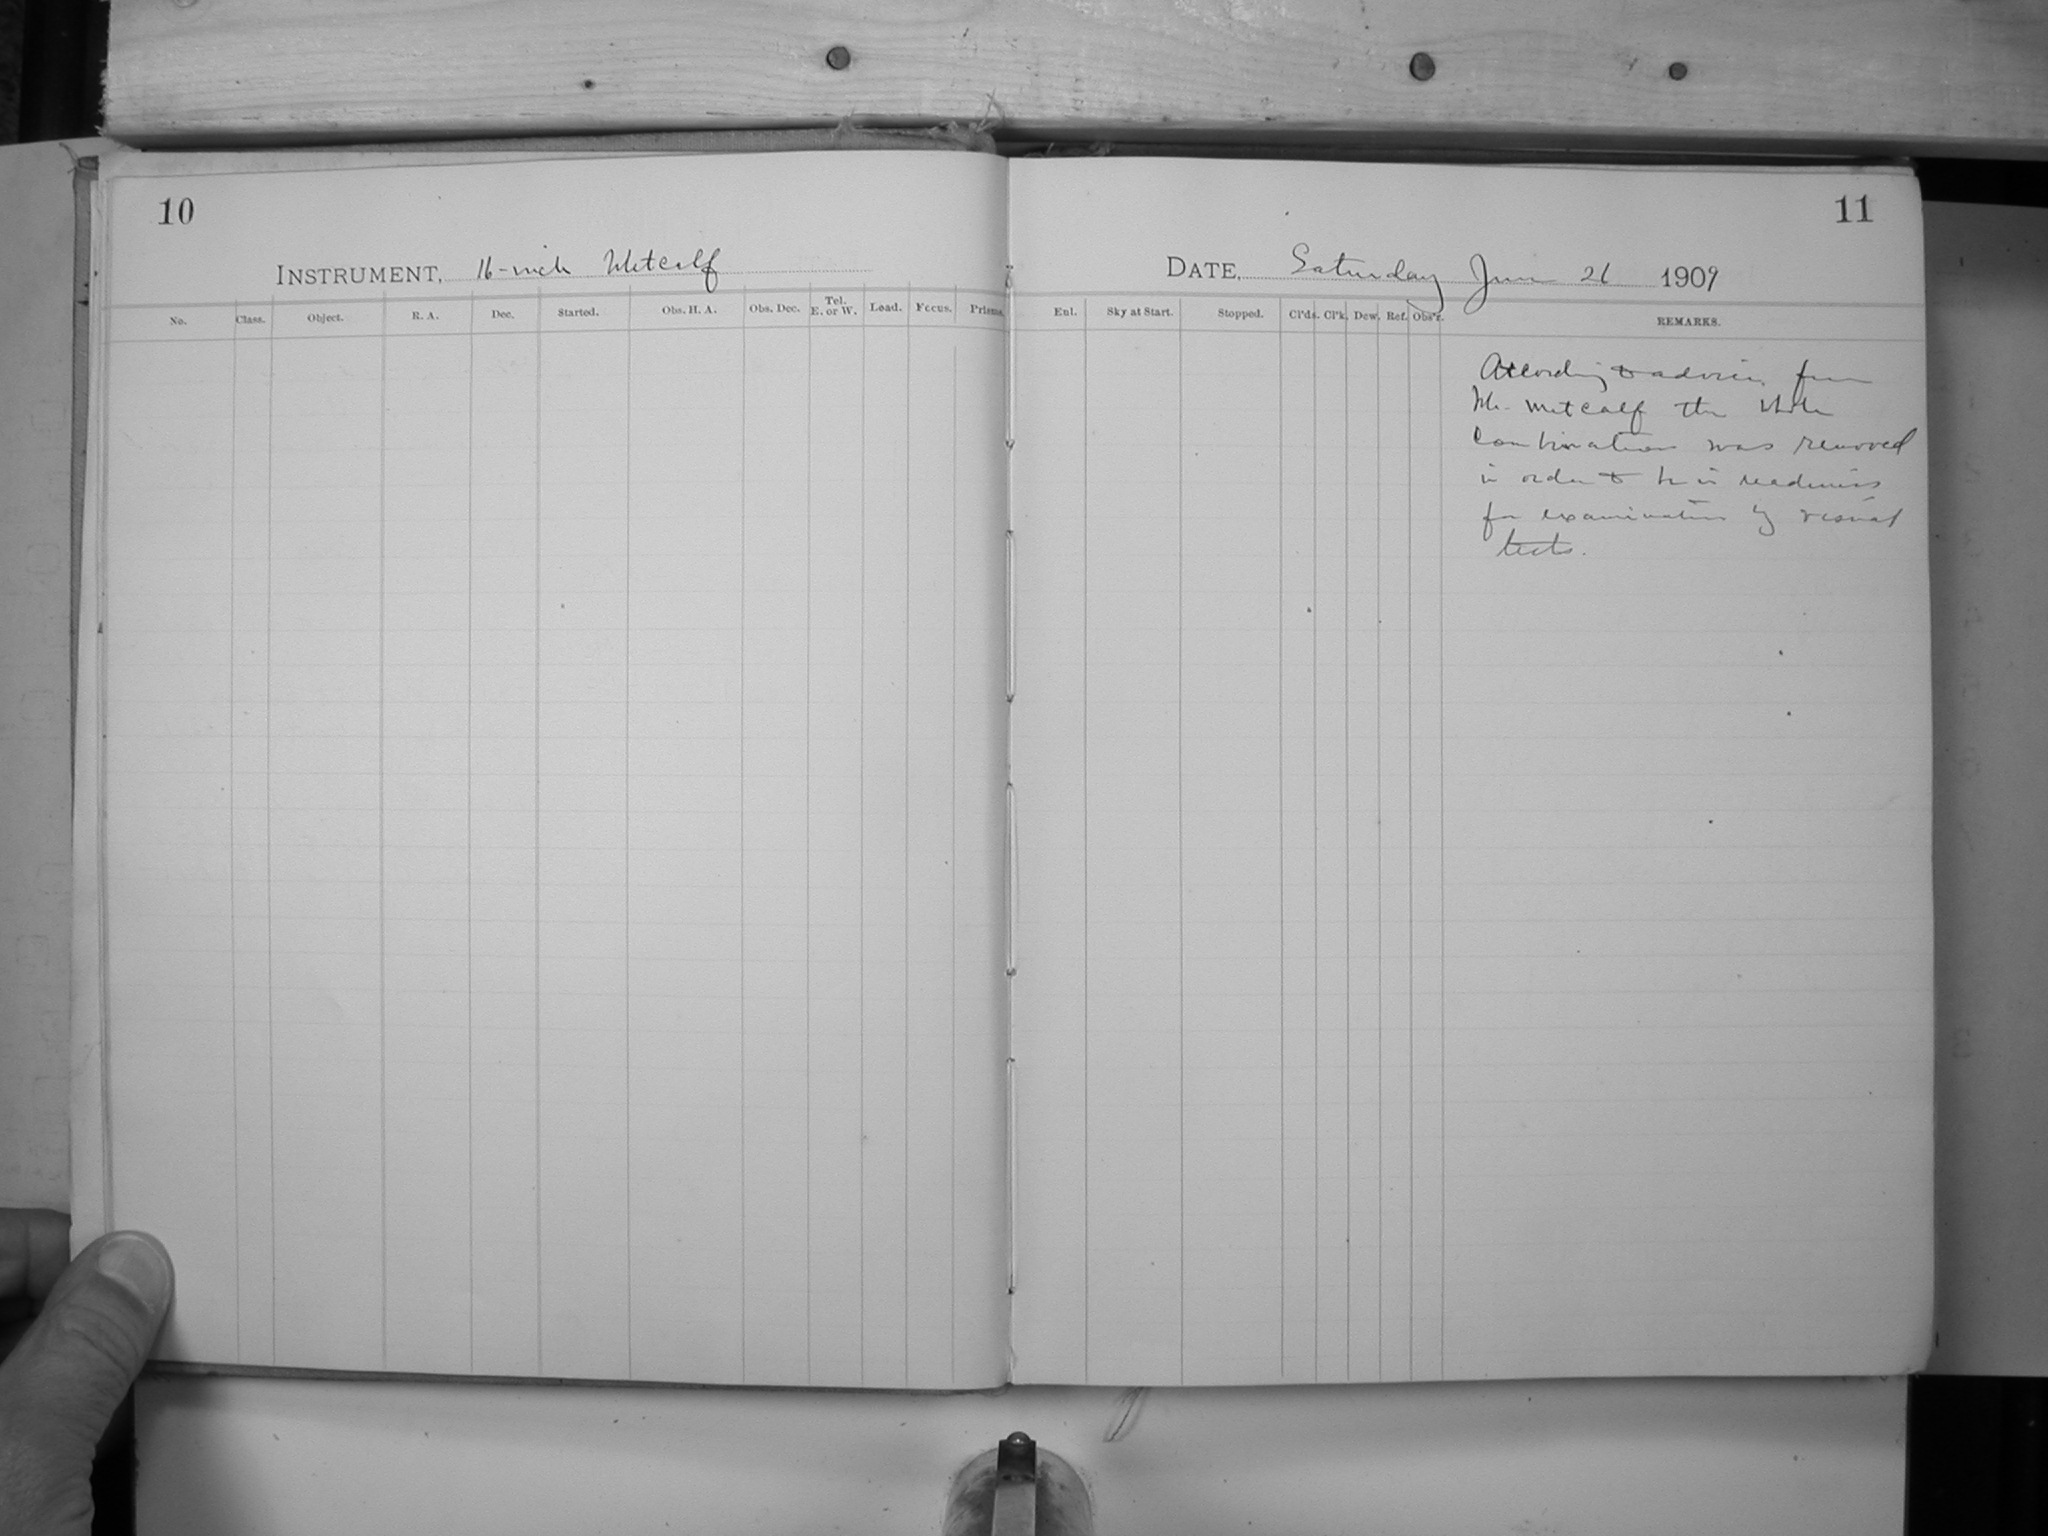 10
11
INSTRUMENT, 16-inch Metcalf
DATE, Saturday June 26 1909
No. Class. Object. R. A. Dec. Started. Obs. H. A. Obs. Dec. Tel. E. or W. Load. Focus. Prisms.
Eul. Sky at Start. Stopped. Cl'ds. Cl'k. Dew. Ref. Obs'r. REMARKS.
According to advice from
Mr. Metcalf the whole
combination was removed
in order to be in readiness
for examination by visual
tests.